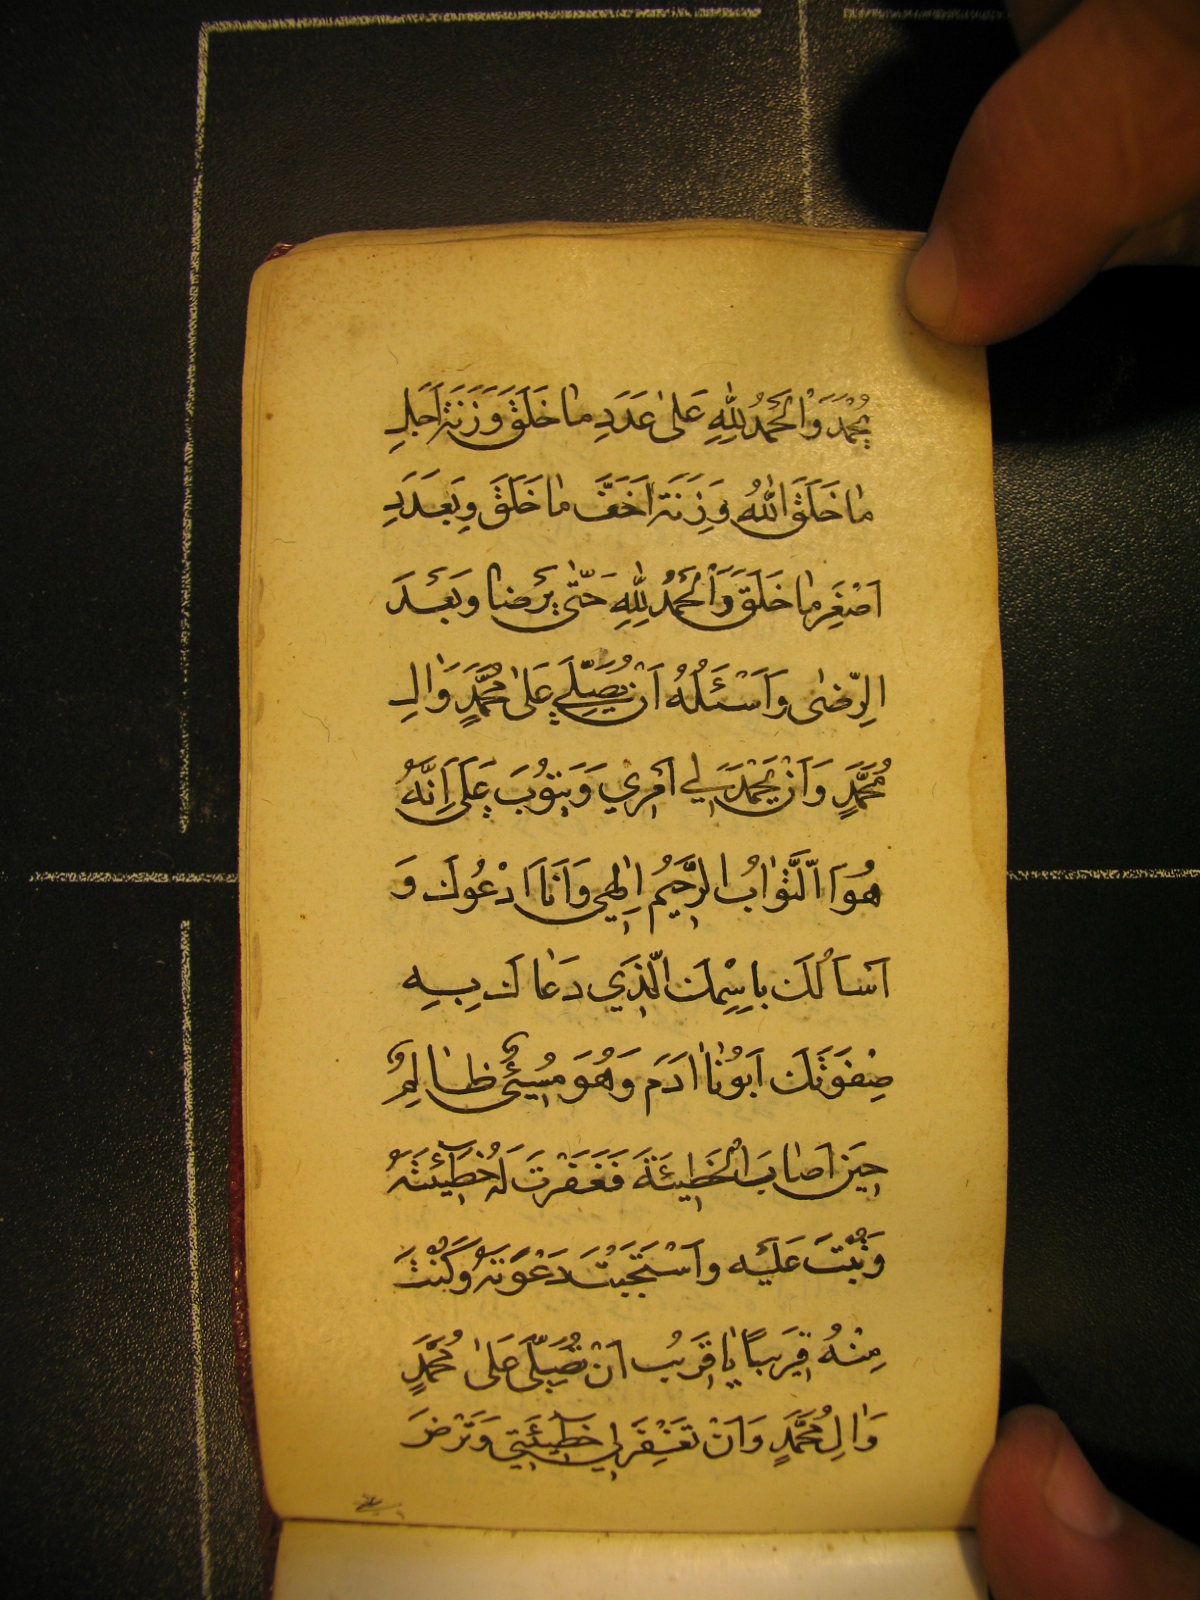 يُحْمَدَ وَالْحَمْدُ لِلّٰهِ عَلىٰ عَدَدِ مٰا خَلَقَ وَزَنَةَ اَجَلِّ
مٰا خَلَقَ اللّٰهُ وَزِنَةَ اَخَفَّ مٰا خَلَقَ وَبِعَدَدِ
اَصْغَرِ مٰا خَلَقَ وَالْحَمْدُ لِلّٰهِ حَتّٰى يَرْضٰا وَبَعْدَ
الرِّضٰى وَاَسْئَلُهُ اَنْ يُصَلِّيَ عَلىٰ مُحَمَّدٍ وَاٰلِ
مُحَمَّدٍ وَاَنْ يَحْمَدَ لِي اَمْرِي وَيَتُوبَ عَلَيَّ اِنَّهُ
هُوَ التَّوّٰابُ الرَّحِيمُ اِلٰهِي وَاَنَا اَدْعُوكَ وَ
اَسْاَلُكَ بِاسْمِكَ الَّذِي دَعٰاكَ بِهِ
صِفْوَتُكَ اَبُونٰا اٰدَمُ وَهُوَ مُسِيئٌ ظٰالِمٌ
حِينَ اَصٰابَ الْخَطِيئَةَ فَغَفَرْتَ لَهُ خَطِيئَتَهُ
وَتُبْتَ عَلَيْهِ وَاسْتَجَبْتَ دَعْوَتَهُ وَكُنْتَ
مِنْهُ قَرِيبًا يٰا قَرِيبُ اَنْ تُصَلِّيَ عَلىٰ مُحَمَّدٍ
وَاٰلِ مُحَمَّدٍ وَاَنْ تَغْفِرَ لِي خَطِيئَتِي وَتَرْضَ